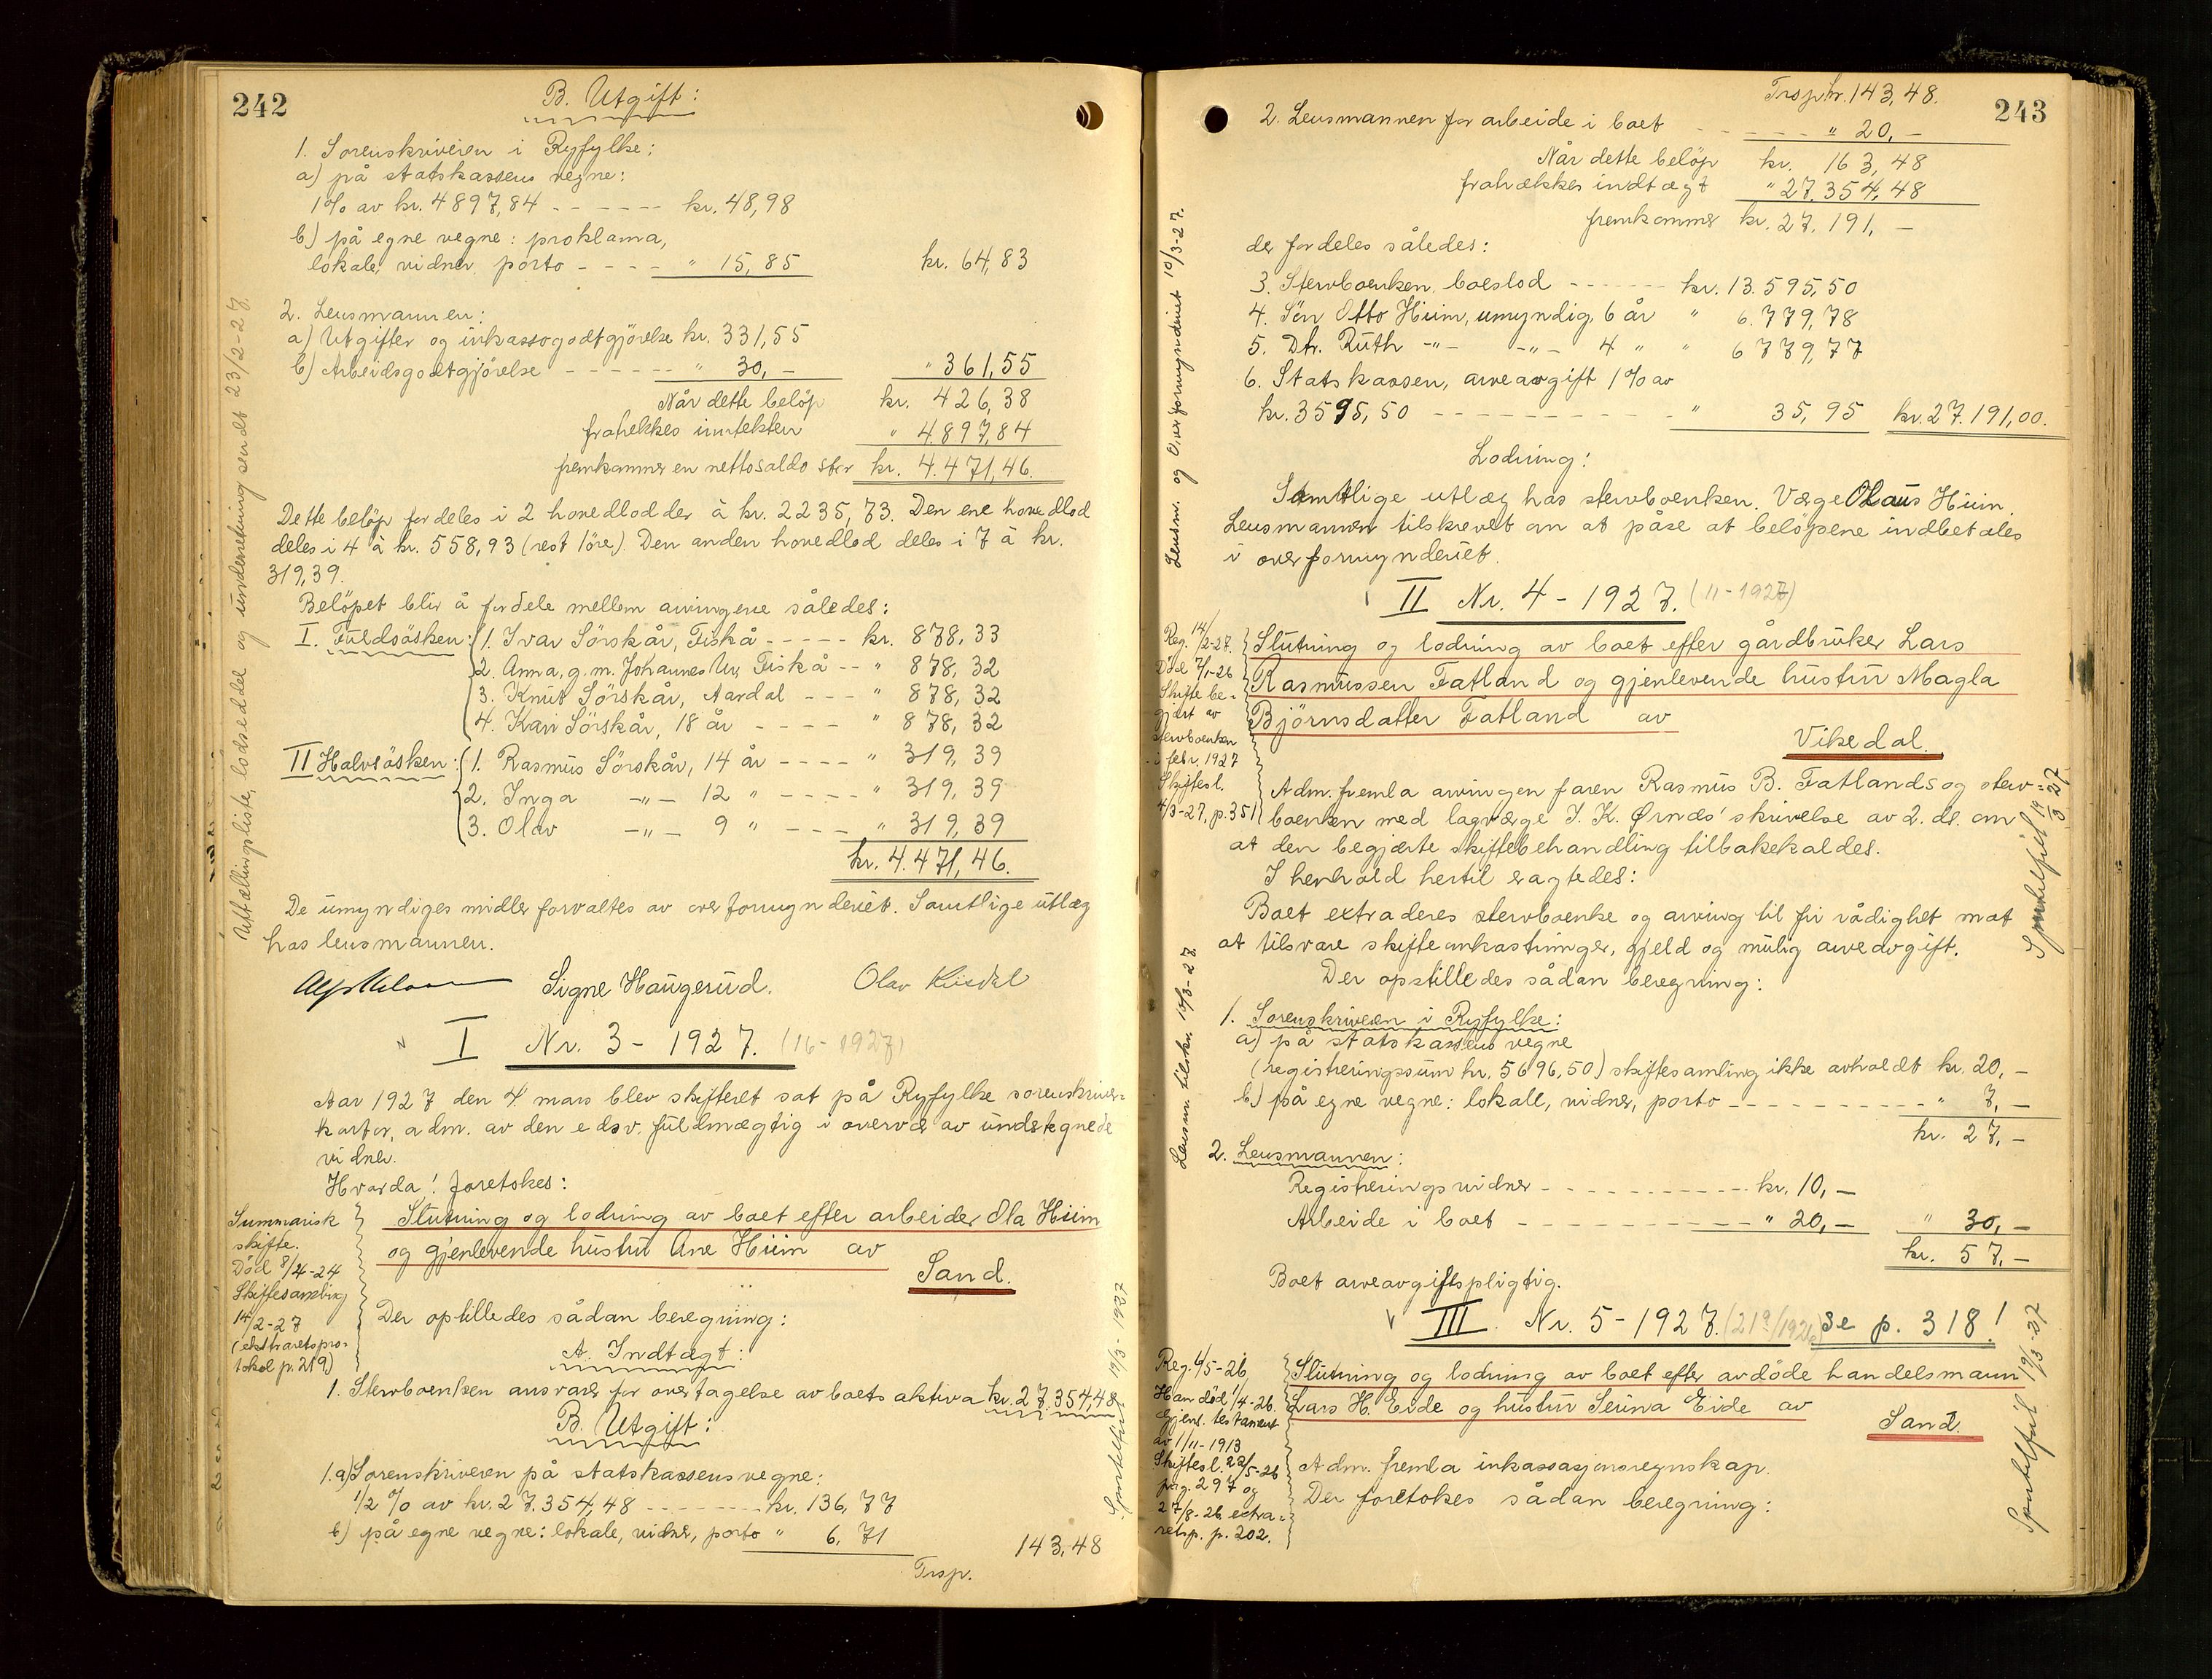 242
B. Utgift:
1. Sorenskriveren i Ryfylke:
a) på statskassens vegne:
1% av kr. 4897,84 - - - - - - kr. 48,98
b) på egne vegne: proklama,
lokale, vidner, porto - - - - " 15,85 kr. 64,83
2. Lensmannen:
a) Utgifter og inkassogodtgjörelse kr. 331,55
b) Arbeidsgodtgjörelse - - - - - - " 30,- " 361,55
Når dette belöp kr. 426,38
frahekkes inntekten " 4.897,84
fremkommer en nettosaldo stor kr. 4.471,46.
Dette belöp fordeles i 2 hovedlodder à kr. 2235,73. Den ene hovedlod
deles i 4 à kr. 558,93 (rest 1öre). Den anden hovedlod deles i 7 à kr.
319,39.
Belöpet blir å fordele mellem arvingene således:
I. Fuldsösken: 1. Ivar Sörskår, Fiskå - - - - - kr. 878,33
2. Anna, g.m. Johannes Ur, Fiskå - - " 878,32
3. Knut Sörskår, Aardal - - - " 878,32
4. Kari Sörskår, 18 år - - - - " 878,32
II Halvsösken: 1. Rasmus Sörskår, 14 år - - - - " 319,39
2. Inga -"- 12 " - - - - " 319,39
3. Olav -"- 9 " - - - " 319,39
kr. 4.471,46.
De umyndiges midler forvaltes av overformynderiet. Samtlige utlæg
hos lensmannen.
Signe Haugerud.
Olav
Uttællingsliste, lodseddel og underretning sendt 23/2-27.
I Nr. 3 - 1927. (16-1927)
Aar 1927 den 4. mars blev skifteret sat på Ryfylke sorenskriver-
kontor, adm. av den edsv. fuldmægtig i overvær av undertegnede
vidner.
Hvorda! foretokes:
Slutning og lodning av boet efter arbeider Ola Hiim
og gjenlevende hustru Ane Hiim av
Sand.
Summarisk
skifte.
Död 8/4-24
Skiftesamling
14/2-27
(ekstraretspro-
tokol p. 219)
Der opstilledes sådan beregning:
A. Indtægt:
1. Stervboenken ansvarer for overtagelse av boets aktiva kr. 27.354,48
B. Utgift:
1.a) Sorenskriveren på statskassens vegne:
1/2 % av kr. 27.354,48 - - - - - - - - kr. 136,77
b) på egne vegne: lokale, vidner, porto " 6,71 143,48
Trsp.
Sportelført 19/3-1927
243
Trsp. kr. 143,48.
2. Lensmannen for arbeide i boet - - - - - - - " 20,-
Når dette belöp kr. 163,48
frahækkes indtægt " 27.354,48
fremkommer kr. 27.191,-
der fordeles således:
3. Stervboenken, boeslod - - - - - - - kr. 13.595,50
4. Sön Otto Hiim, umyndig, 6 år " 6.779,78
5. Dtr. Ruth -"- -"- 4 " " 6779,77
6. Statskassen, arveavgift 1% av
kr. 3595,50 - - - - - - - - - - - " 35,95 kr. 27.191,00.
Lodning:
Samtlige utlæg hos stervboenken. Værge Olaus Hiim.
Lensmannen tilskrevet om at påse at belöpene indbetales
i overformynderiet.
Lensm. og Overformynderiet 10/3-27.
II Nr. 4 - 1927. (11-1927)
Slutning og lodning av boet efter gårdbruker Lars
Rasmussen Fatland og gjenlevende hustru Magla
Björnsdatter Fatland av
Vikedal.
Reg. 14/2-27.
Död 7/1-26
Skifte be-
gjært av
stervboenken
i febr. 1927
Skiftesl.
4/3-27, p. 351
Adm. fremla arvingen faren Rasmus B. Fatlands og sterv-
boenken med lagværge J. K. Ørnes' skrivelse av 2. ds. om
at den begjærte skiftebehandling tilbakekaldes.
I henhold hertil eragtedes:
Boet extraderes stervboenke og arving til fri rådighet mot
at tilsvare skifteomkostninger, gjeld og mulig arveavgift.
Der opstilledes sådan beregning:
1. Sorenskriveren i Ryfylke:
a) på statskassens vegne
(registreringssum kr. 5696,50) skiftesamling ikke avholdt kr. 20,-
b) på egne vegne: lokale, vidner, porto - - - - - - - - - - " 7,-
kr. 27,-
2. Lensmannen:
Registreringsvidner - - - - - - - - - - - - kr. 10,-
Arbeide i boet - - - - - - - - - - - - " 20,- " 30,-
kr. 57,-
Boet arveavgiftspligtig.
Sportelført 19/3 27
Lensm. tilskr. 10/3-27.
III Nr. 5 - 1927. (219/1926) Se p. 318!
Slutning og lodning av boet efter avdöde handelsmann
Lars H. Eide og hustru Serina Eide av
Sand.
Reg. 4/5-26
Han död 1/4-26.
Gjens. testament
av 1/11-1913
Skiftesl. 22/5-26
pag. 297 og
27/8-26 extra-
retsp. p. 202.
Adm. fremla inkassasjonsregnskap.
Der foretokes sådan beregning:
Sportelført 19/3-27